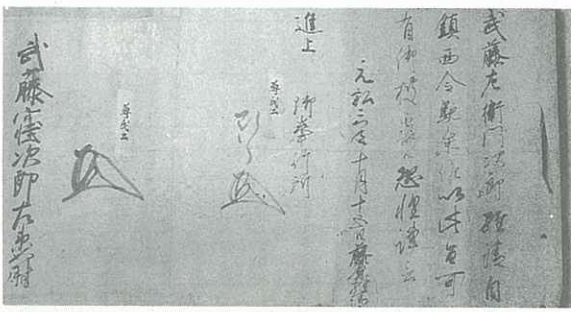 武藤左衛門次郎経清自
鎮西令馳参候以此旨可
有御披露候恐惶謹言
元弘三年十月十日藤
進上 御奉行所
尊氏公
尊氏公
武藤次郎左衛門尉